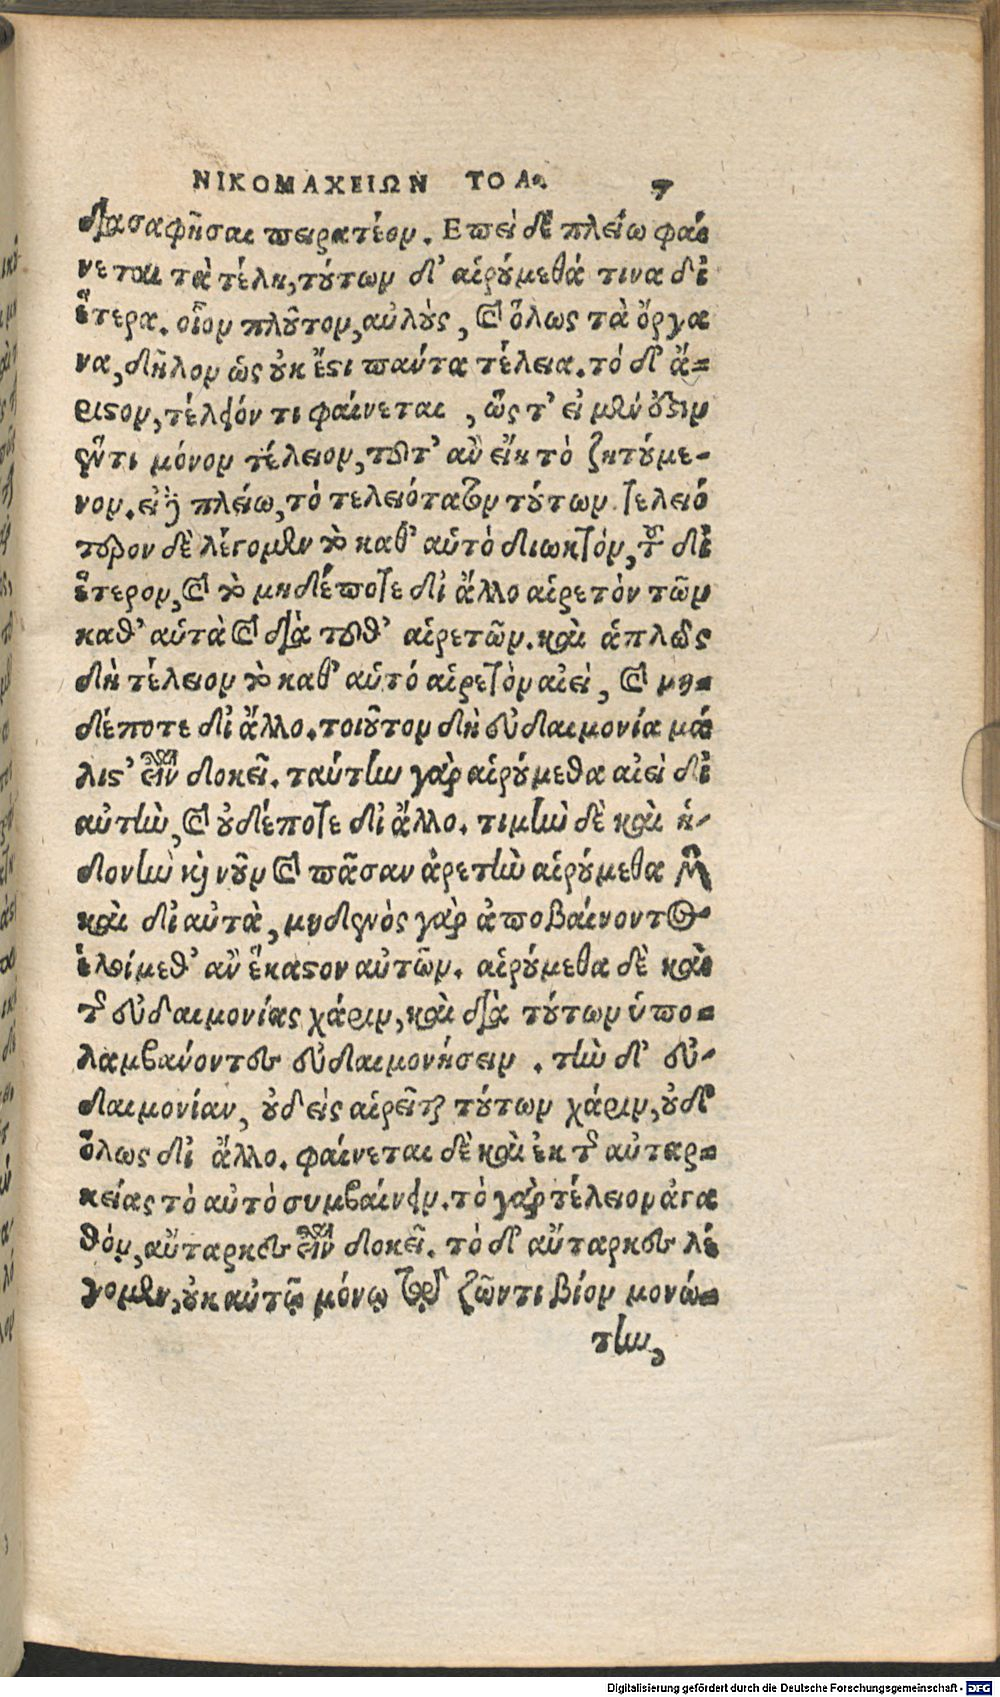 ΝΙΚΟΜΑΧΕΙΩΝ ΤΟ Α. 7
διασαφῆσαι πειρατέον. Επεὶ δὲ πλείω φαί
νεται τὰ τέλη, τούτων δ' αἱρούμεθά τινα δι'
ἕτερα. οἷον πλοῦτον, αὐλοὺς, καὶ ὅλως τὰ ὄργα
να, δῆλον ὡς οὐκ ἔστι πάντα τέλεια. τό δ' ἄ-
ριστον, τέλειόν τι φαίνεται, ὥς τ' εἰ μέν ὅξιν
ἕν τι μόνον τέλειον, τοῦτ' ἂν εἴη τὸ ζητούμε-
νον. εἰ δὲ πλείω, τὸ τελειότατον τούτων τελειό
τερον δὲ λέγομεν τὸ καθ' αὑτὸ διωκτόν, τοῦ δι'
ἕτερον, καὶ τὸ μηδέποτε δι' ἄλλο αἱρετὸν τῶν
καθ' αὑτὰ καὶ διὰ τοῦθ' αἱρετῶν. καὶ ἁπλῶς
δὴ τέλειον τὸ καθ' αὑτό αἱρετὸν αἰεί, καὶ μη-
δέποτε δι' ἄλλο. τοιοῦτον δὴ εὐδαιμονία μά
λιστ' εἶναι δοκεῖ. ταύτην γὰρ αἱρούμεθα αἰεὶ δι'
αὑτὴν, καὶ οὐδέποτε δι' ἄλλο. τιμὴν δὲ καὶ ἡ-
δονὴν καὶ νοῦν καὶ πᾶσαν ἀρετὴν αἱρούμεθα μὲν
καὶ δι' αὐτὰ, μηδενὸς γὰρ ἀποβαίνοντος
ἑλοίμεθ' ἂν ἕκαστον αὐτῶν. αἱρούμεθα δὲ καὶ
τῆς εὐδαιμονίας χάριν, καὶ διὰ τούτων ὑπο-
λαμβάνοντες εὐδαιμονήσειν. τὴν δ' εὐ-
δαιμονίαν, οὐδ εἰς αἱρεῖται τούτων χάριν, οὐδ'
ὅλως δι' ἄλλο. φαίνεται δὲ καὶ ἐκ τῆς αὐταρ-
κείας τὸ αὐτὸ συμβαίνειν. τὸ γὰρ τέλειον ἀγα
θόν, αὔταρκες εἶναι δοκεῖ. τὸ δ' αὔταρκες λέ
γομεν, οὐκ αὐτῷ μόνῳ τῷ ζῶντι βίον μονώ-
την,